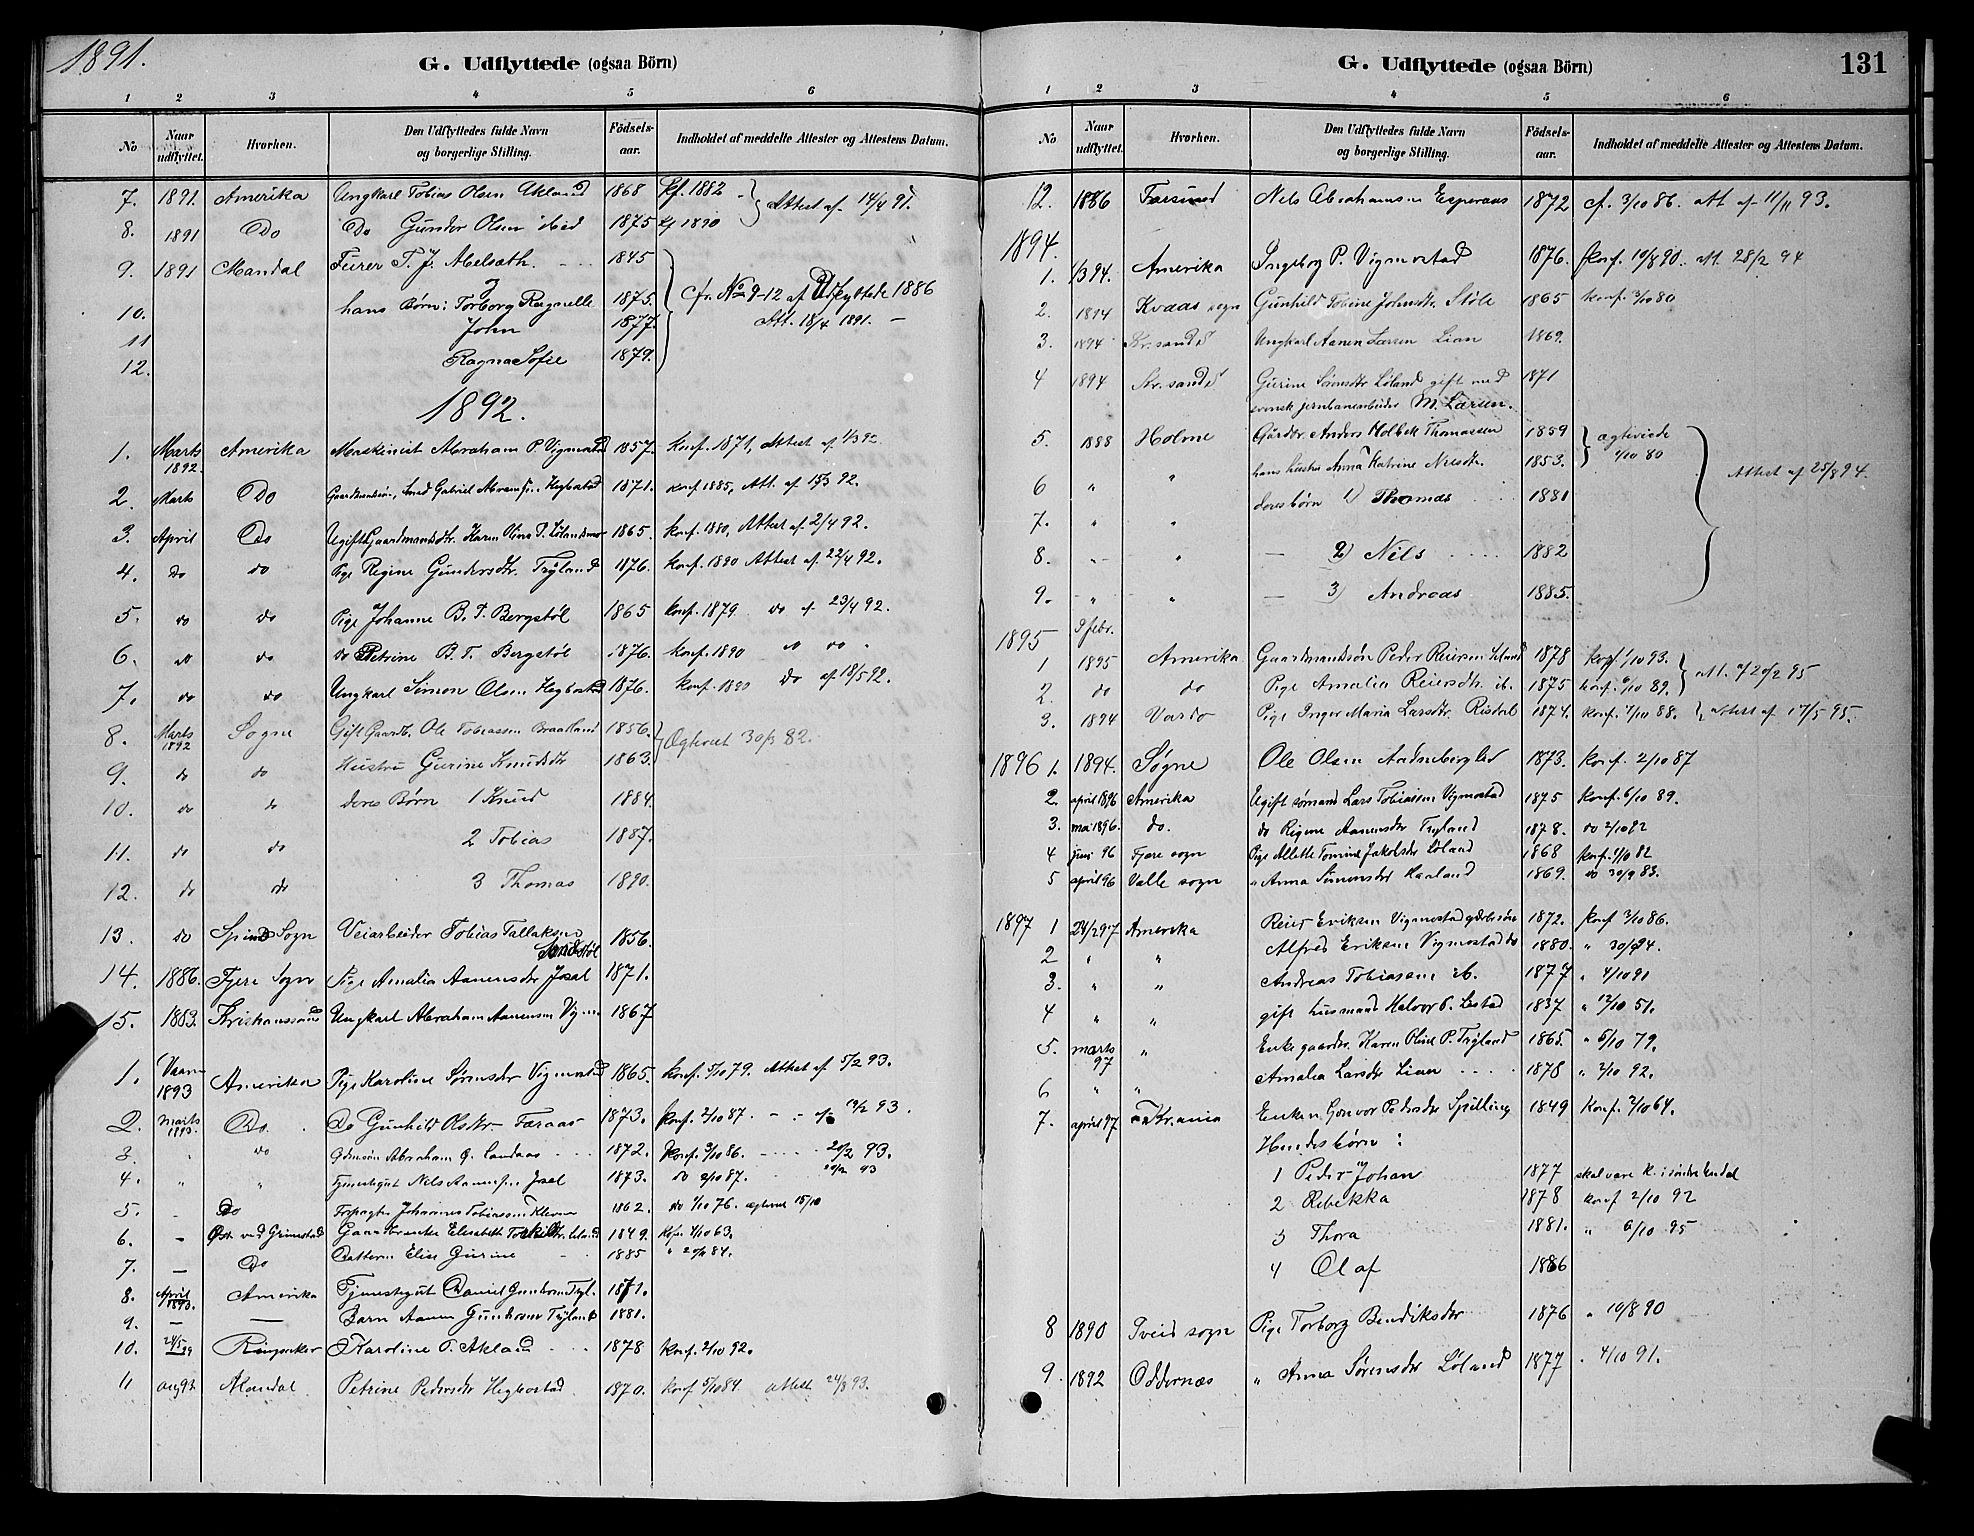 1891.
G. Udflyttede (ogsaa Börn)
1 2 3 4 5 6
No Naar udflyttet. Hvorhen. Den Udflyttedes fulde Navn og borgerlige Stilling. Födsels-aar. Indholdet af meddelte Attester og Attestens Datum.
7. 1891. Amerika Ungkarl Tobias Olsen Akland 1868 kf. 1882 Attest af 14/4 91.
8. 1891 Do Do Gunder Olsen ibid 1875 kf 1890
9. 1891 Mandal Furer T. J. Abelsæth. 1845
10. hans Børn: Torborg Ragnelle 1875. cfr. No 9-12 af Udflyttede 1886
11 John 1877. Att. 18/4 1891. —
12. Ragna Sofie 1879.
1892.
1. Marts 1892. Amerika Maskinist Abraham P. Vigmostad 1857. konf. 1871, Attest af 1/3 92.
2. Marts Do Gabriel Hegbostad 1871. konf 1885, Att. af 92.
3. April Do Ugift Gaardmandsdtr. Karen P. 1865. konf. 1880, Attest af 2/4 92.
4. do do Pige Regine Gundersdtr. Tryland 1876. konf. 1890 Attest af 22/4 92.
5. do do Pige Johanne B. T. Bergstøl 1865 konf. 1879 do af 23/4 92.
6. do do do Petrine B. T. Bergstøl 1876. konf. 1890 " do "
7. do do Ungkarl Simon Olsen Hegbostad 1876. konf. 1890 do af 18/5 92.
8. Marts 1892 Sogne Gift Gaardb. Ole Tobiassen Braatland 1856. Ægteviet 82.
9. do do Hustru Gurine Knudsdtr 1863.
10. do do deres Børn 1 Knud 1884.
11. do do 2 Tobias 1887.
12. do do 3 Thomas 1890.
13. do Spind Sogn Veiarbeider Tobias Tallaksen Sandstøl 1856.
14. 1886. Fjere Sogn Pige Amalia Aanensdtr Josal 1871.
15. 1883. Kristianssand Ungkarl Abraham Aanensen Vigm 1867
1. Vaaren 1893 Amerika Pige Karoline Sørensdtr Vigmostad 1865. konf. 5/10 79. Attest af 5/2 93.
2. marts 1893. Do. Do Gunhild Olsdtr Faraas 1873. konf. 2/10 87. - - af 13/2 93.
3. " do Abraham G. Landaas 1872. konf. 3/10 86. 20/2 93.
4. " " Tjenestegut Nels Josal 1873. do 2/10 87. 93
5. - Do Johannes Tobiassen Kleven 1862. do 1/10 76. 15/10
6. - ved Grimstad Elisabeth 1849. kfr. 4/10 63.
7. — Do Datteren Elise Gurine 1885 " 84.
8. April 1893. Amerika Tjenestegut Daniel Gundersen Tryl. 1871.
9. — — Barn Aanen Gundersen Tryland 1881.
10. Karoline O. Akland 1878 konf. 2/10 92.
11 aug 93 Mandal. Petrine Pedersdtr Hegbostad 1870. konf 5/10 84. attest 24/8 93.
G. Udflyttede (ogsaa Börn) 131
1 2 3 4 5 6
No Naar udflyttet. Hvorhen. Den Udflyttedes fulde Navn og borgerlige Stilling. Födsels-aar. Indholdet af meddelte Attester og Attestens Datum.
12. 1886 Farsund Nels Abrahamsen Esperaas 1872 cf. 3/10 86. Att af 11/11 93.
1894.
1. 1/3 94. Amerika Ingeborg P. Vigmostad 1876. konf. 10/8 90. Att. 28/2 94
2. 1894 Kvaas sogn Gunhild Tobine Johnsdtr. Støle 1865 konf. 3/10 80
3. 1894 Kr.sand S Ungkarl Aanen Larsen Lian 1869.
4 1894 Kr.sand S Gurine Sørensdtr Løland gift med 1871
svensk jernbanearbeider M. Larsen.
5. 1888 Holme Gårdbr. Anders Holbek Thomassen 1859 ægteviede 4/10 80 Attest af 25/8 94.
6 " " hans hustru Anna Katrine Nilsdtr. 1853.
7. " " deres børn 1) Thomas 1881
8. " " — 2) Nils 1882
9. " " — 3) Andreas 1885.
1895 9 febr.
1 1895 Amerika Gaardmandssøn Peder Reiersen Leland 1878 konf. 1/10 93. Att. af 20/2 95
2. do do Pige Amalia Reiersdtr. ib. 1875 konf. 6/10 89.
3. 1894 Vardø Pige Inger Maria Larsdtr. Risdal 1874. konf. 7/10 88. Attest af 17/5 95.
1896 1. 1894. Søgne Ole Olsen 1873. Konf. 2/10 87
2. april 1896 Amerika Ugift sømand Lars Tobiassen Vigmostad 1875 Konf. 6/10 89.
3. mai 1896. do. do Regine Aanensdtr Tryland 1878. do 2/10 92
4 juni 96 Fjære sogn Pige Allette Tomine Jakobsdtr Løland 1868 konf. 1/10 82
5 april 96 Valle sogn " Anna Simonsdtr Haaland 1869. do 30/9 83.
1897 1 24/2 97 Amerika Reier Eriksen Vigmostad 1872. konf 3/10 86.
2 " " Alfred Eriksen Vigmostad do 1880. " 30/9 94.
3. " " Andreas Tobiassen ib. 1877 " 4/10 91
4 " " gift husmand Halvor P. Lestad 1837 " 12/10 51.
5. marts 97 " Enke gaardbr. Karen Oline P. Tryland 1865. " 5/10 79.
6 " " Amalia Larsdtr Lian 1878 " 2/10 92.
7. april 97 Kr.ania Enken Gonvor Pedersdtr Spilling 1849 Konf. 2/10 64.
Hendes børn:
1 Peder Johan 1877 skal være K. i søndre Undal
2 Rebekka 1878 konf 2/10 92
3 Thora 1881. " 6/10 95
4 Olaf 1886
8 1890 Tveid sogn Pige Torborg Bendiksdtr 1876 " 10/8 90
9. 1892 Oddernæs " Anna Sørensdtr Løland 1877 " 4/10 91.